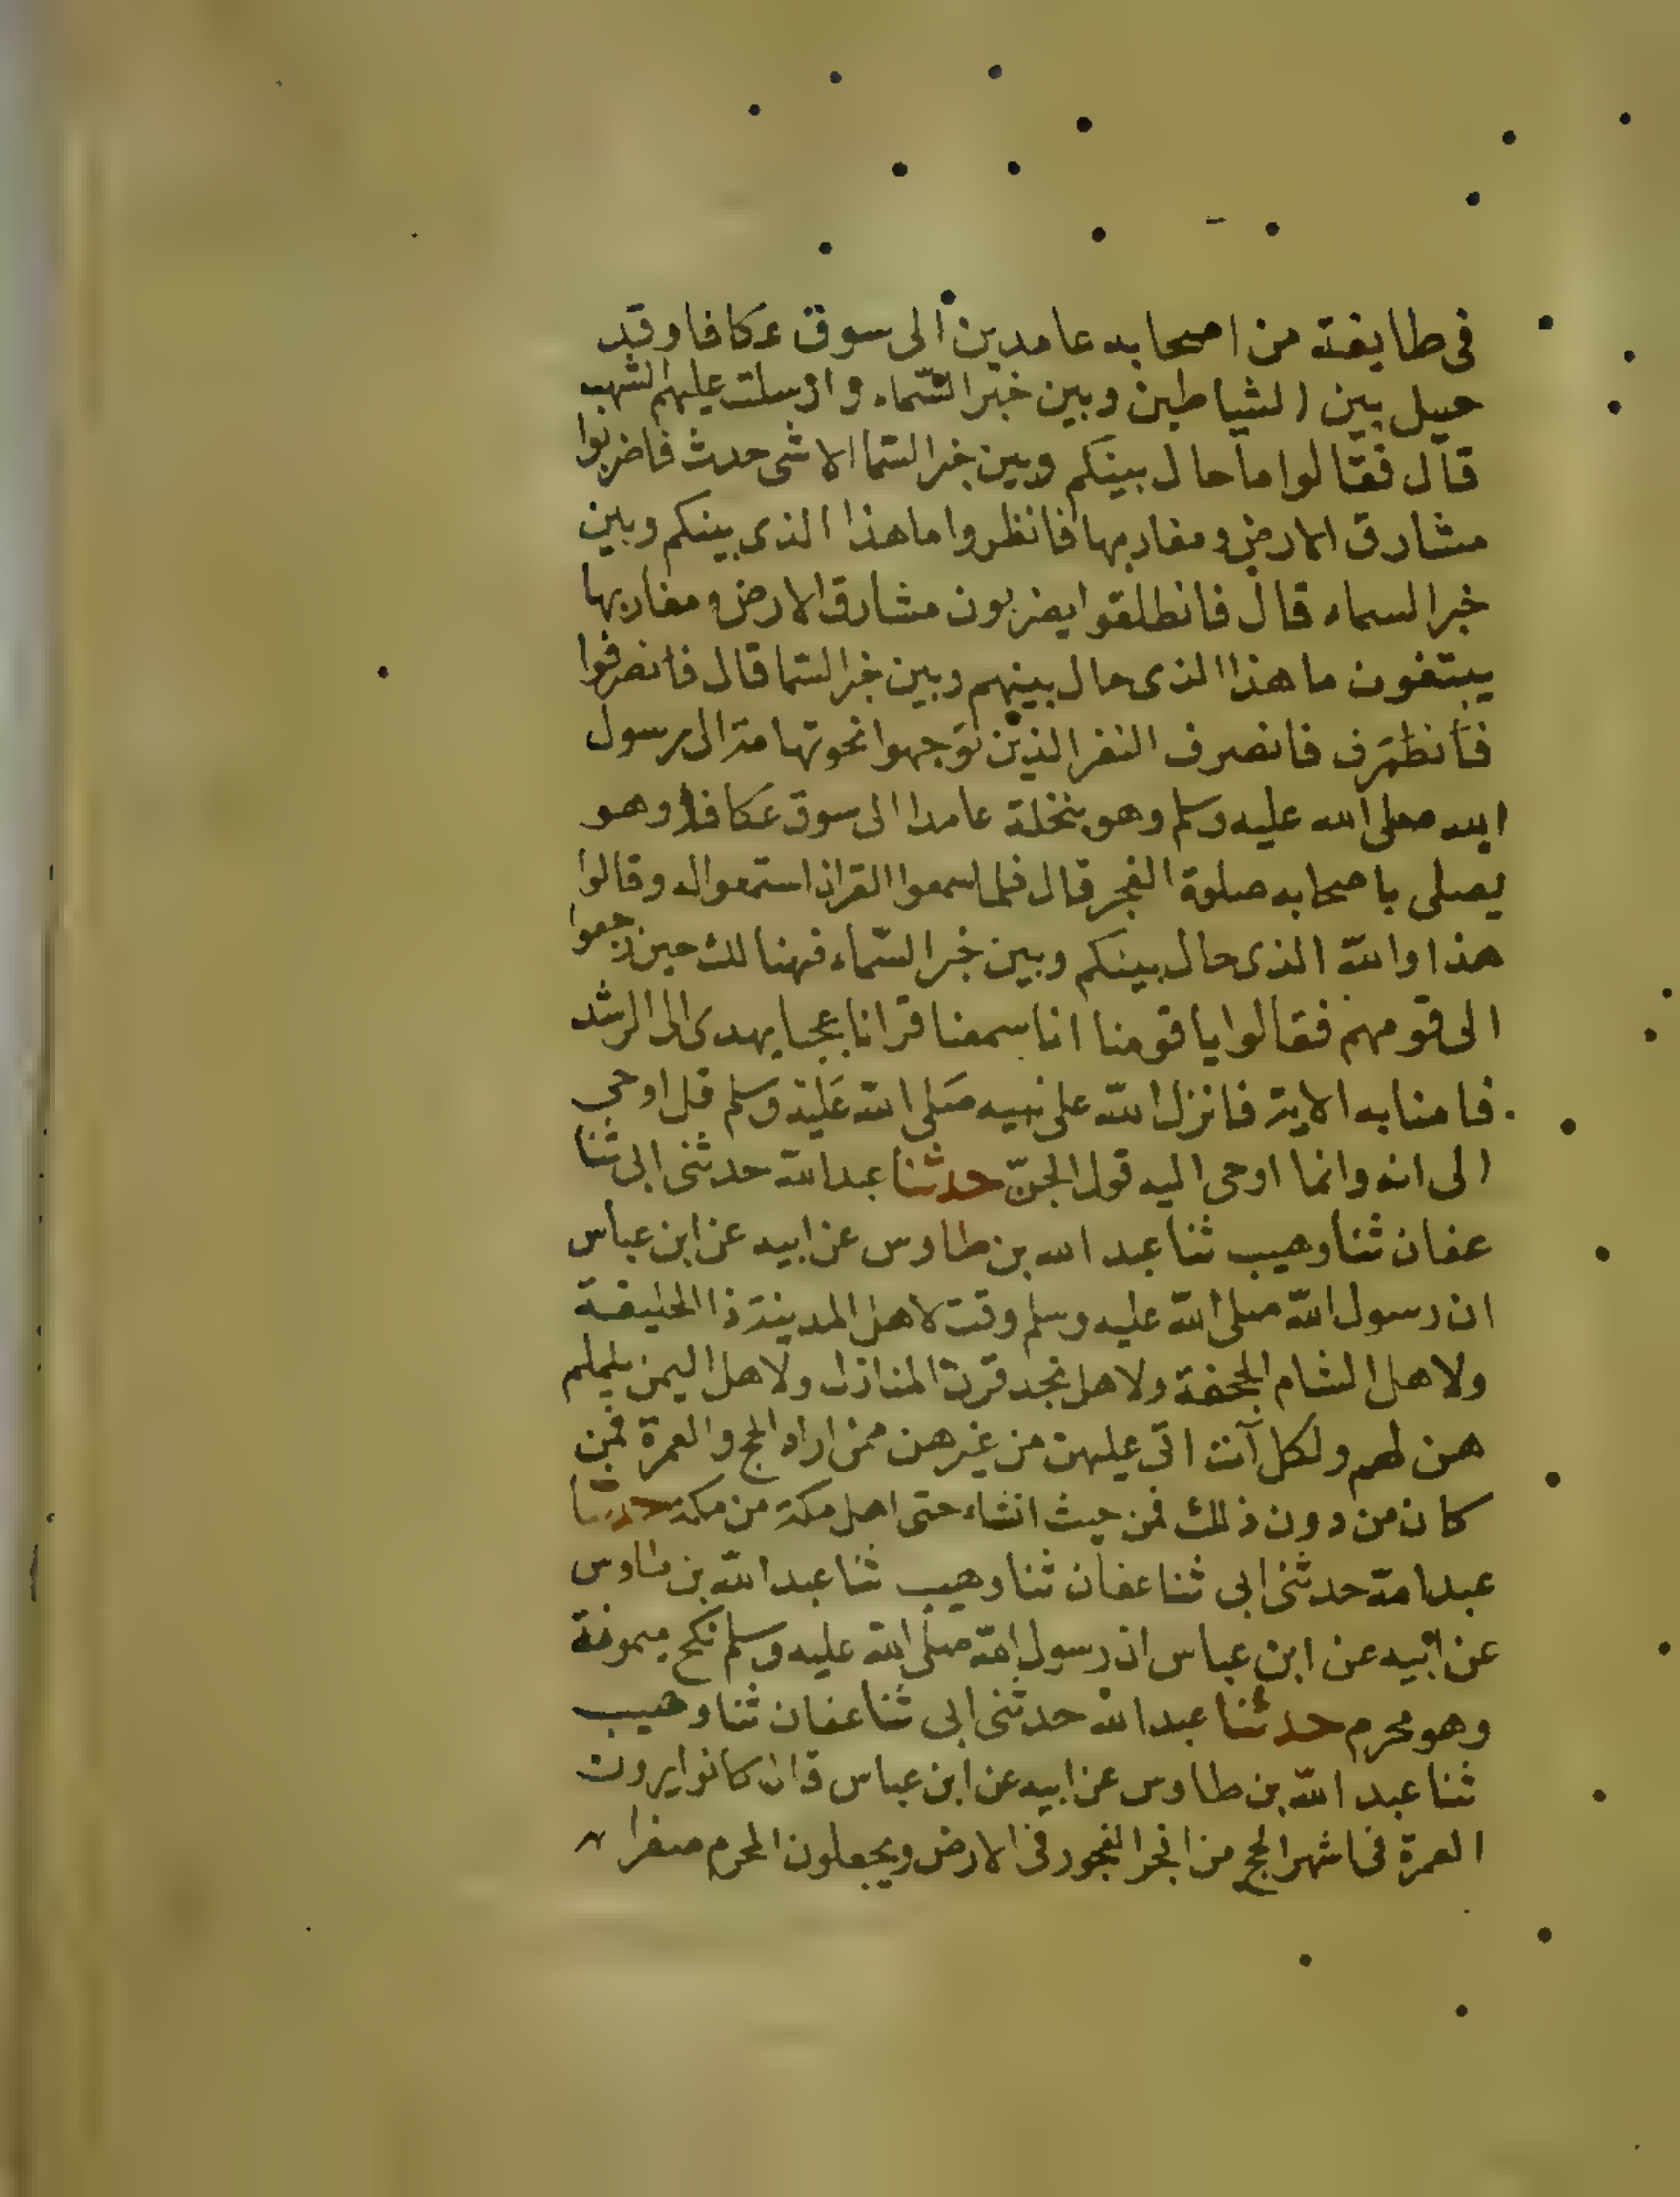 فى طايفة من اصحابه عامدين الى سوق عكاظ وقد
حيل بين الشياطين وبين خبر السّماء وارسلت عليهم الشهب
قال فقالوا ما حال بينكم وبين خبر السّما الا شى حدث فاضربوا
مشارق الارض ومغاربها فانظروا ما هذا الذى بينكم وبين
خبر السماء قال فانطلقوا يضربون مشارق الارض ومغاربها
يبتغون ما هذا الذى حال بينهم وبين خبر السّما قال فانصرفوا
فانصرف النفر الذين توجهوا نحو تهامة الى رسول
الله صلى الله عليه وسلم وهو بنخلة عامدا الى سوق عكاظ وهو
يصلى باصحابه صلوة الفجر قال فلما سمعوا القران استمعوا له وقالوا
هذا والله الذى حال بينكم وبين خبر السّماء فهنالك حين رجعوا
الى قومهم فقالوا يا قومنا انا سمعنا قرانا عجبا يهدى الى الرشد
فامنا به الاية فانزل الله على نبيه صَلى الله عَليه وسلم قل اوحى
الى انه وانما اوحى اليه قول الجنّ حدثنا عبد الله حدثنى ابى ثنا
عفان ثنا وهيب ثنا عبد الله بن طاوس عن ابيه عن ابن عباس
ان رسول الله صلى الله عليه وسلم وقت لاهل المدينة ذا الحليفة
ولاهل الشام الجحفة ولاهل نجد قرن المنازل ولاهل اليمن يلملم
هن لهم ولكل آت اتى عليهن من غيرهن ممن اراد الحج والعمرة فمن
كان من دون ذلك فمن حيث انشاء حتى اهل مكة من مكة حدثنا
عبد الله حدثنى ابى ثنا عفان ثنا وهيب ثنا عبد الله بن طاوس
عن ابيه عن ابن عباس ان رسول الله صلى الله عليه وسلم نكح ميمونة
وهو محرم حدثنا عبد الله حدثنى ابى ثنا عفان ثنا وهيب
ثنا عبد الله بن طاوس عن ابيه عن ابن عباس قال كانوا يرون
العمرة فى اشهر الحج من افجر الفجور فى الارض ويجعلون المحرم صفرا